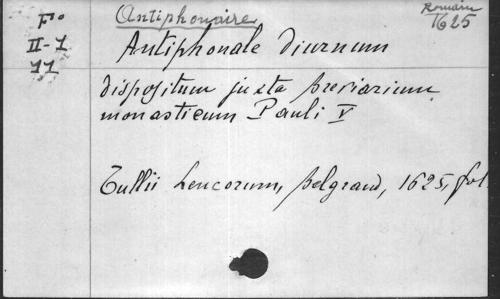 Fº
II-1
11
Antiphonaire
Romain
1625
Antiphonale diurnum
dispositum juxta breviarium
monasticum Pauli V
Tullii Leucorum, Belgrand, 1625, fol.